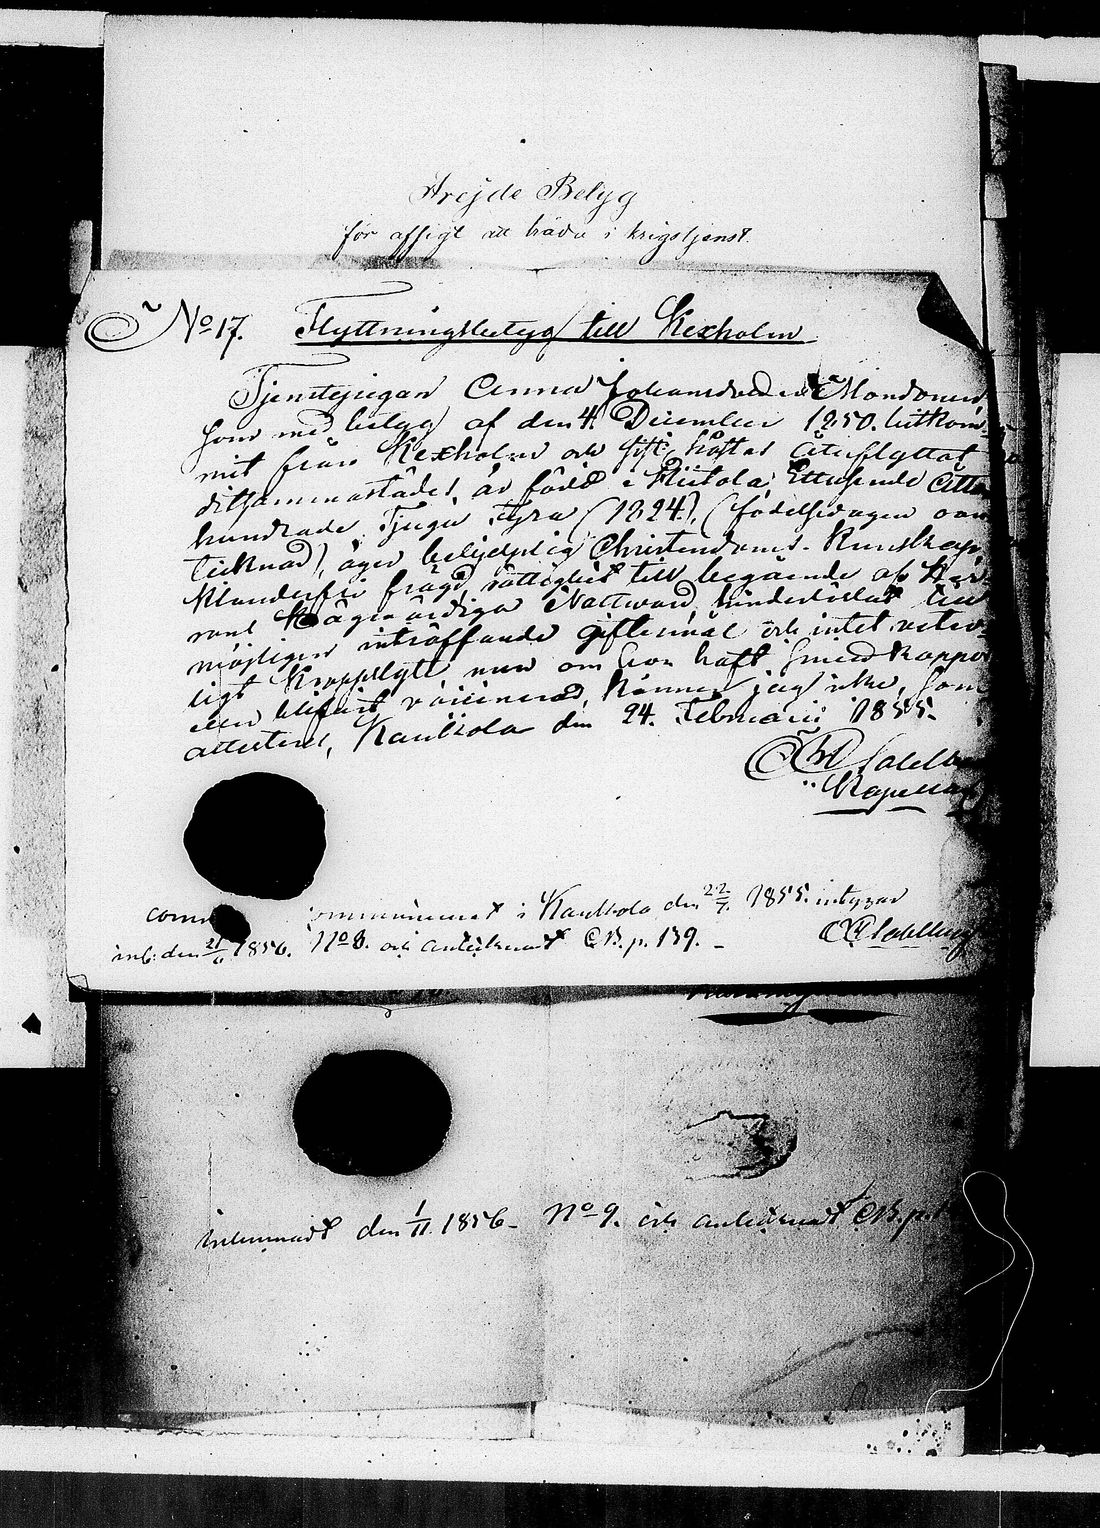 Arejde Betyg
för affigt att träda i krigstjenst.
No 17. Flyttningsbetyg till Kexholm
Tjenstepigan Anna Johansdotter Mondonen,
som med betyg af den 4 December 1850. hitkom-
mit från Kexholm och sist höstas återflyttat
ditsammastädes, är född i Hiitola Ettusende Åtta
hundrade Tjugu Fyra (1824), (födelsedagen oan
tecknad), äger behjelplig Christendoms-Kunskap,
Klanderfri frägd, rättighet till begående af Her
rans Högvärdiga Nattward, hinderslöshet till
möjligen inträffande giftermål och intet veter-
ligt Kroppslyte men om hon haft Smittkoppor
eller blifvit vaccinerad, känner jag icke, som
attesteras, Kaukola den 24. Februarii 1855.
Kapellan
communicerat i Kaukola den 22/7. 1855. intygar
inl: den 21/6 1856. No 8. och antecknadt CB. p. 139. -
Inlemnadt den 1/11. 1856- No 9. och antecknadt CB. p.